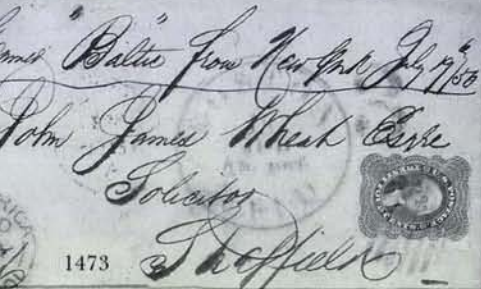 "Baltic" from New York July 19
John James Wheat Esqre
Solicitor
Sheffield
1473